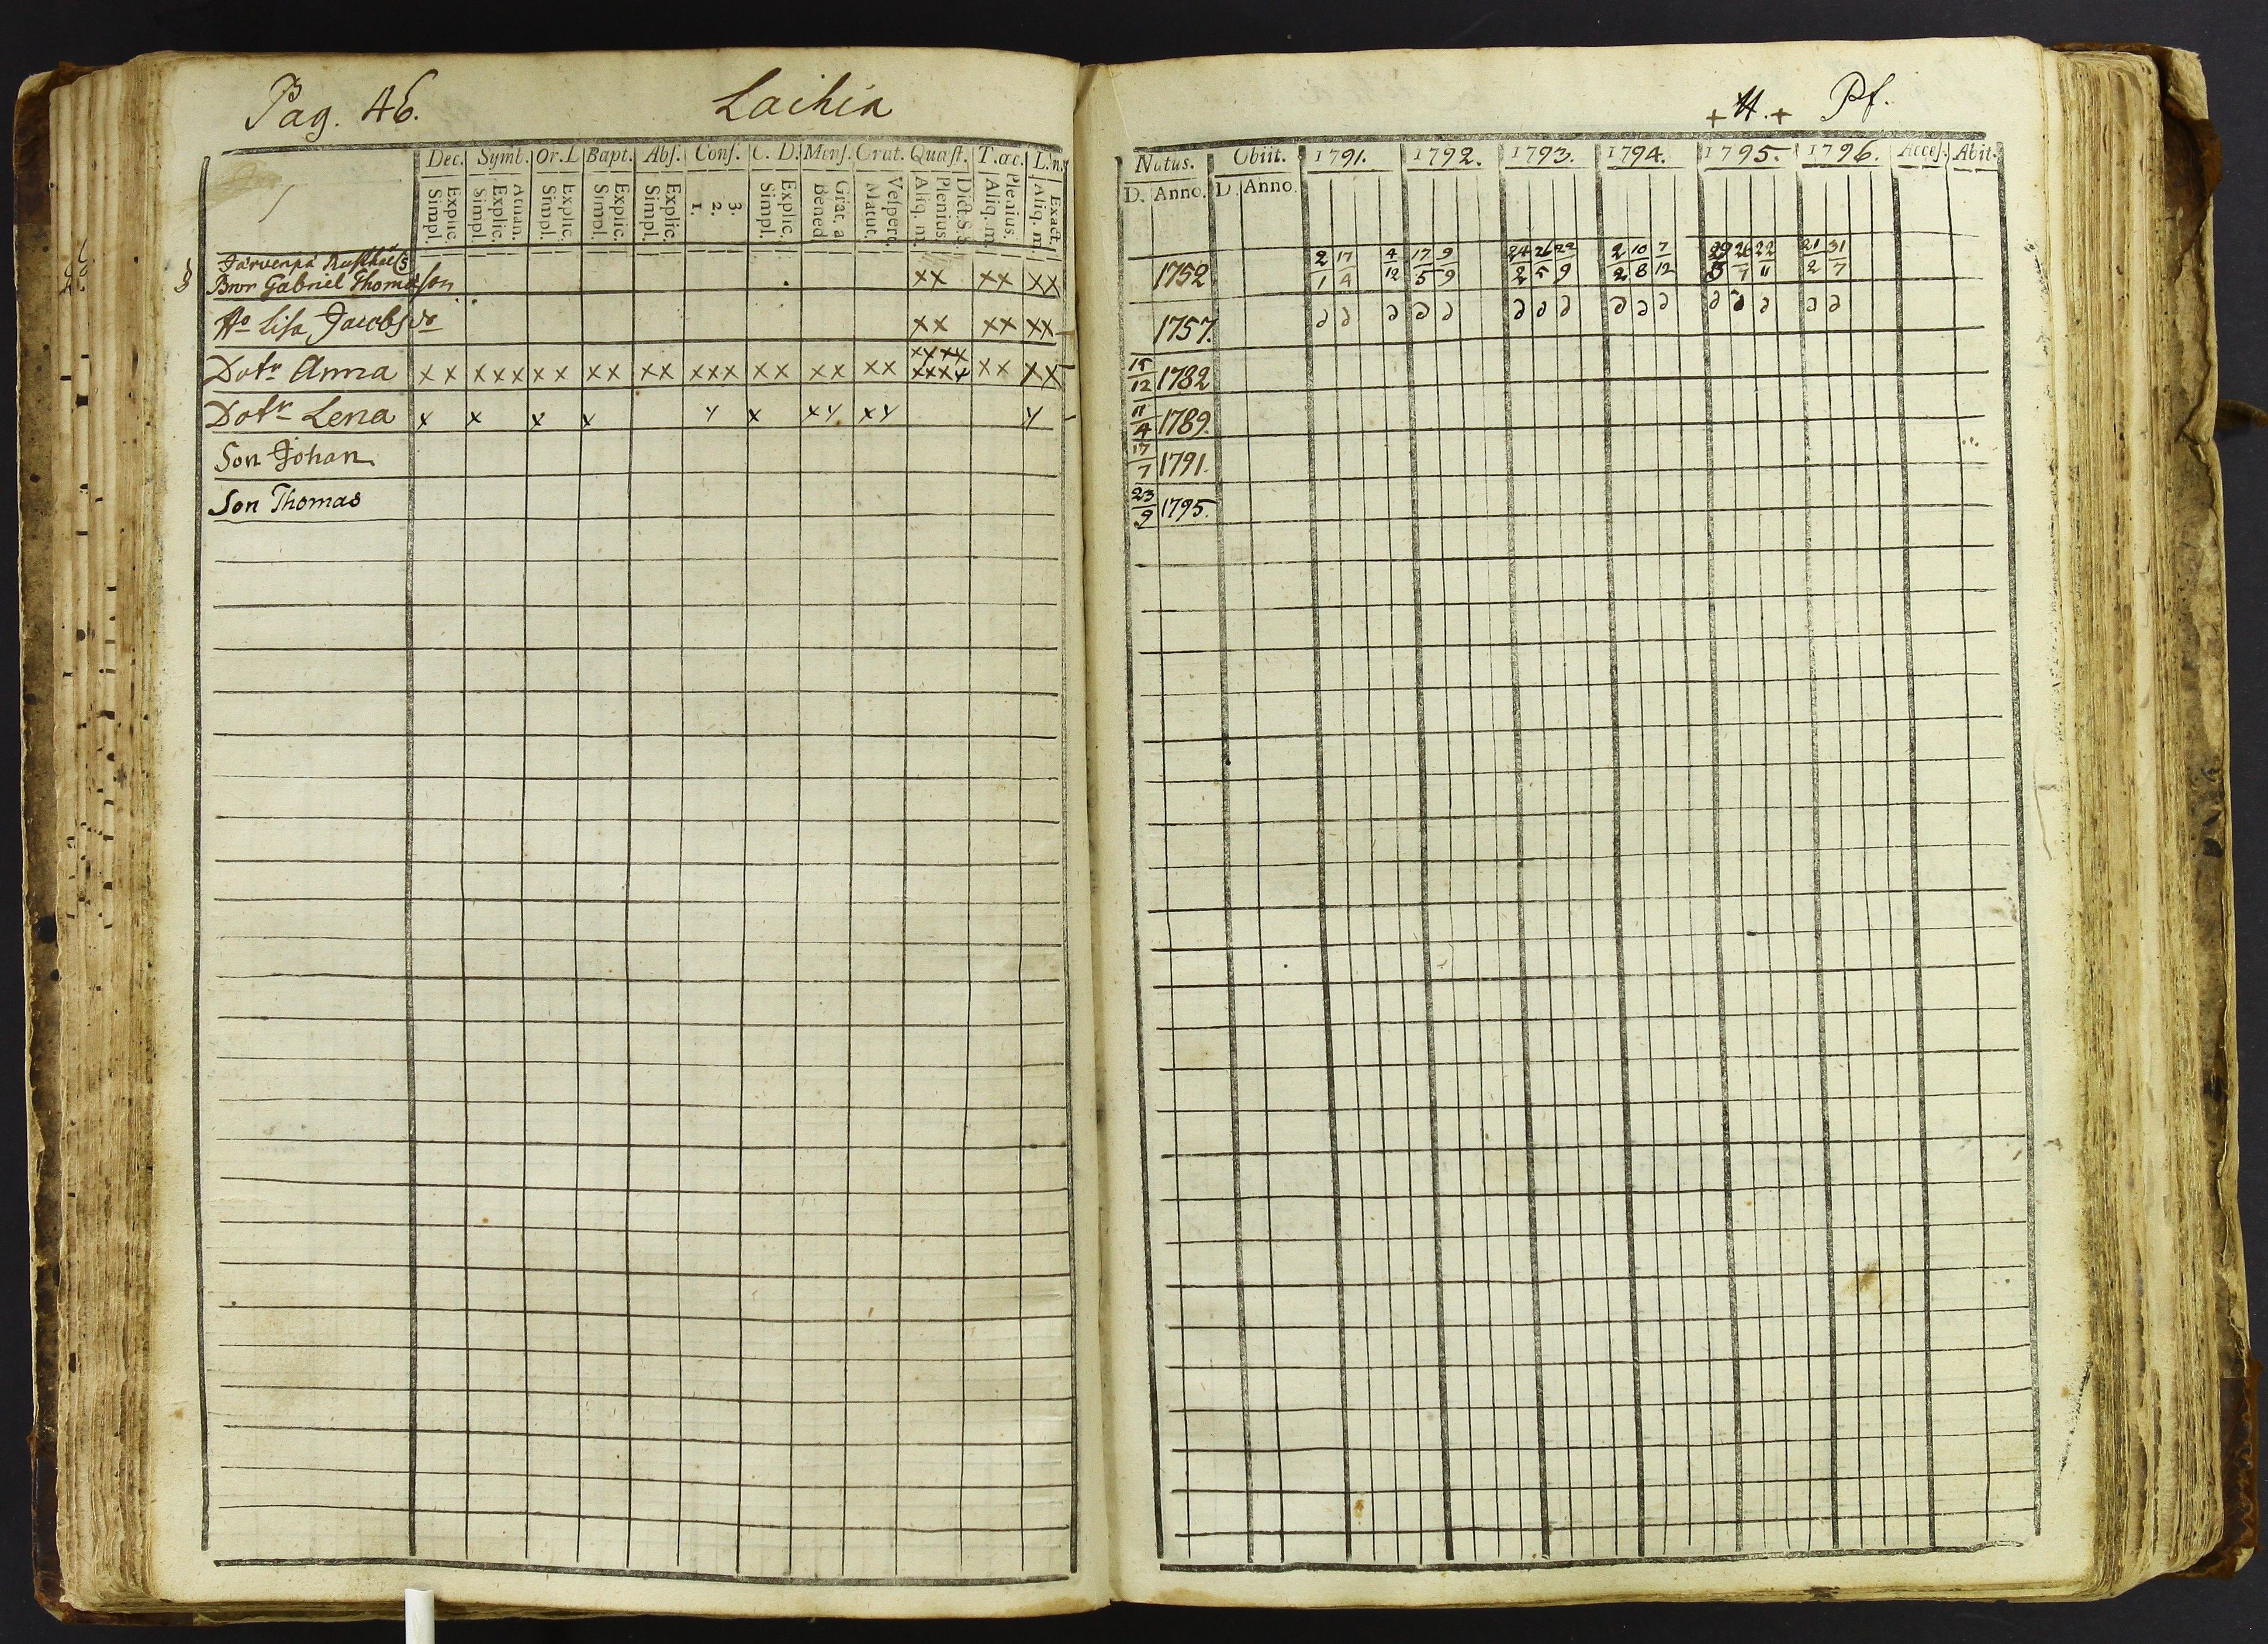 Pag. 46. Laihia
Dec. Symb. Or. L Bapt. Abs. Conf. C. D. Mens. Orat. Quæst. T. æc. L. n.
Explic. Simpl. Athan. Explic. Simpl. Explic. Simpl. Explic. Simpl. Explic. Simpl. 3. 2. 1. Explic. Simpl. Grat. a Bened Vesper. Matut. Dict. S. S. Plenius. Aliq. m. Plenius. Aliq. m. Exact. Aliq. m.
Järvenpä
§ Bror Gabriel Thomasson xx xx xx
Ho Lisa Jacobsdr xx xx xx
Dotr Anna xx xxx xx xx xx xxx xx xx xx xxxx xxxx xx xx
Dotr Lena x x x x y x xy xy y
Son Johan
Son Thomas
+ H. + Pf.
Natus. Obiit. 1791. 1792. 1793. 1794. 1795. 1796. Acces. Abit.
D. Anno. D. Anno.
1752 2/1 17/4 4/12 17/5 9/9 24/2 26/5 22/9 2/2 10/8 7/12 26/7 22/11 21/2 31/7
1757. ∂ ∂ ∂ ∂ ∂ ∂ ∂ ∂ ∂ ∂ ∂ ∂ ∂ ∂ ∂ ∂
15/12 1782
11/4 1789.
17/7 1791.
23/9 1795.